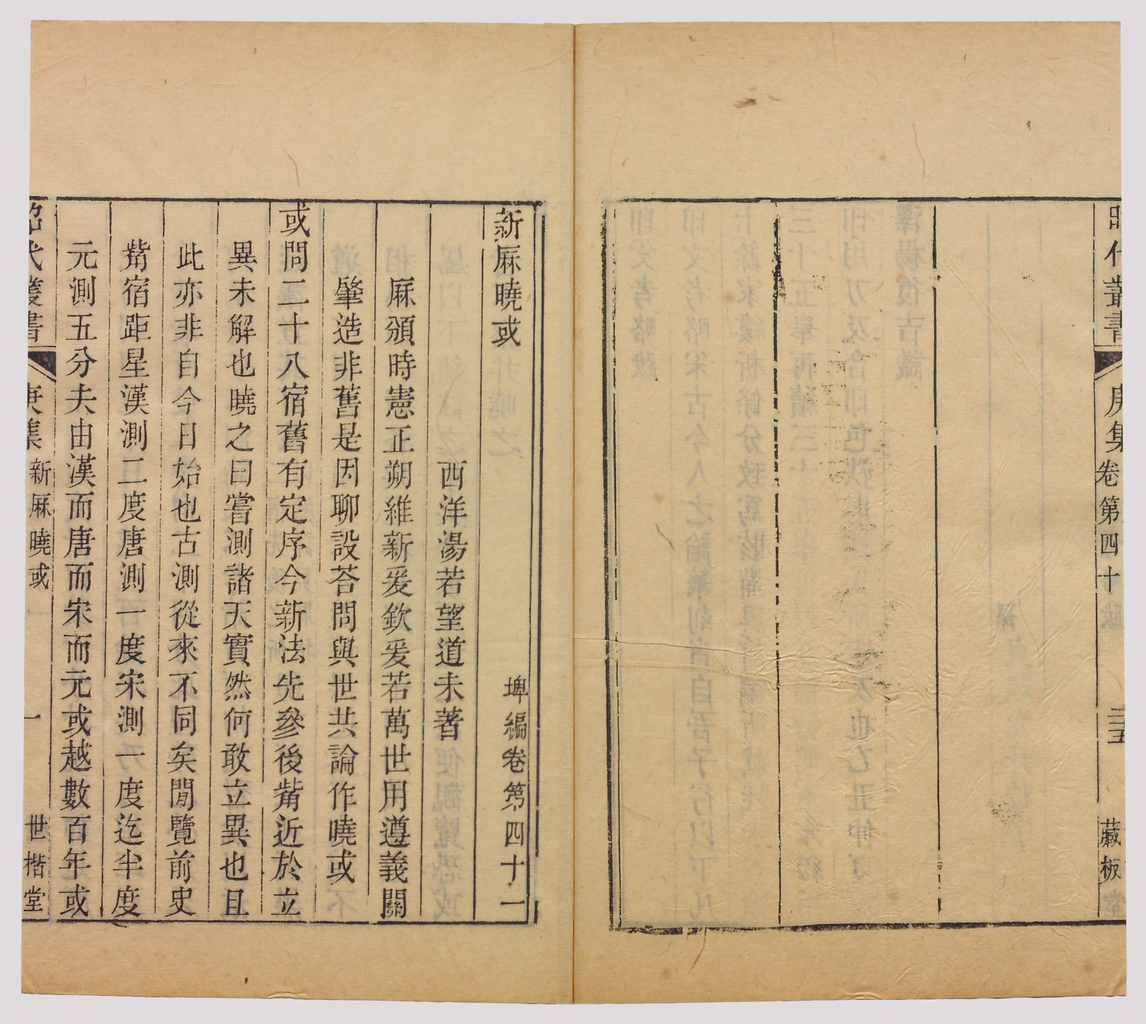 昭代叢書 庚集卷第四十 三五 藏板
新厤曉或 埤編卷第四十一
西洋湯若望道未著
厤頒時憲正朔維新爰欽爰若萬世用遵義關
肇造非舊是因聊設荅問與世共論作曉或
或問二十八宿舊有定序今新法先參後觜近於立
異未解也曉之曰嘗測諸天實然何敢立異也且
此亦非自今日始也古測從來不同矣閒覽前史
觜宿距星漢測二度唐測一度宋測一度迄半度
元測五分夫由漢而唐而宋而元或越數百年或
昭代叢書 庚集 新厤曉或 一 世楷堂